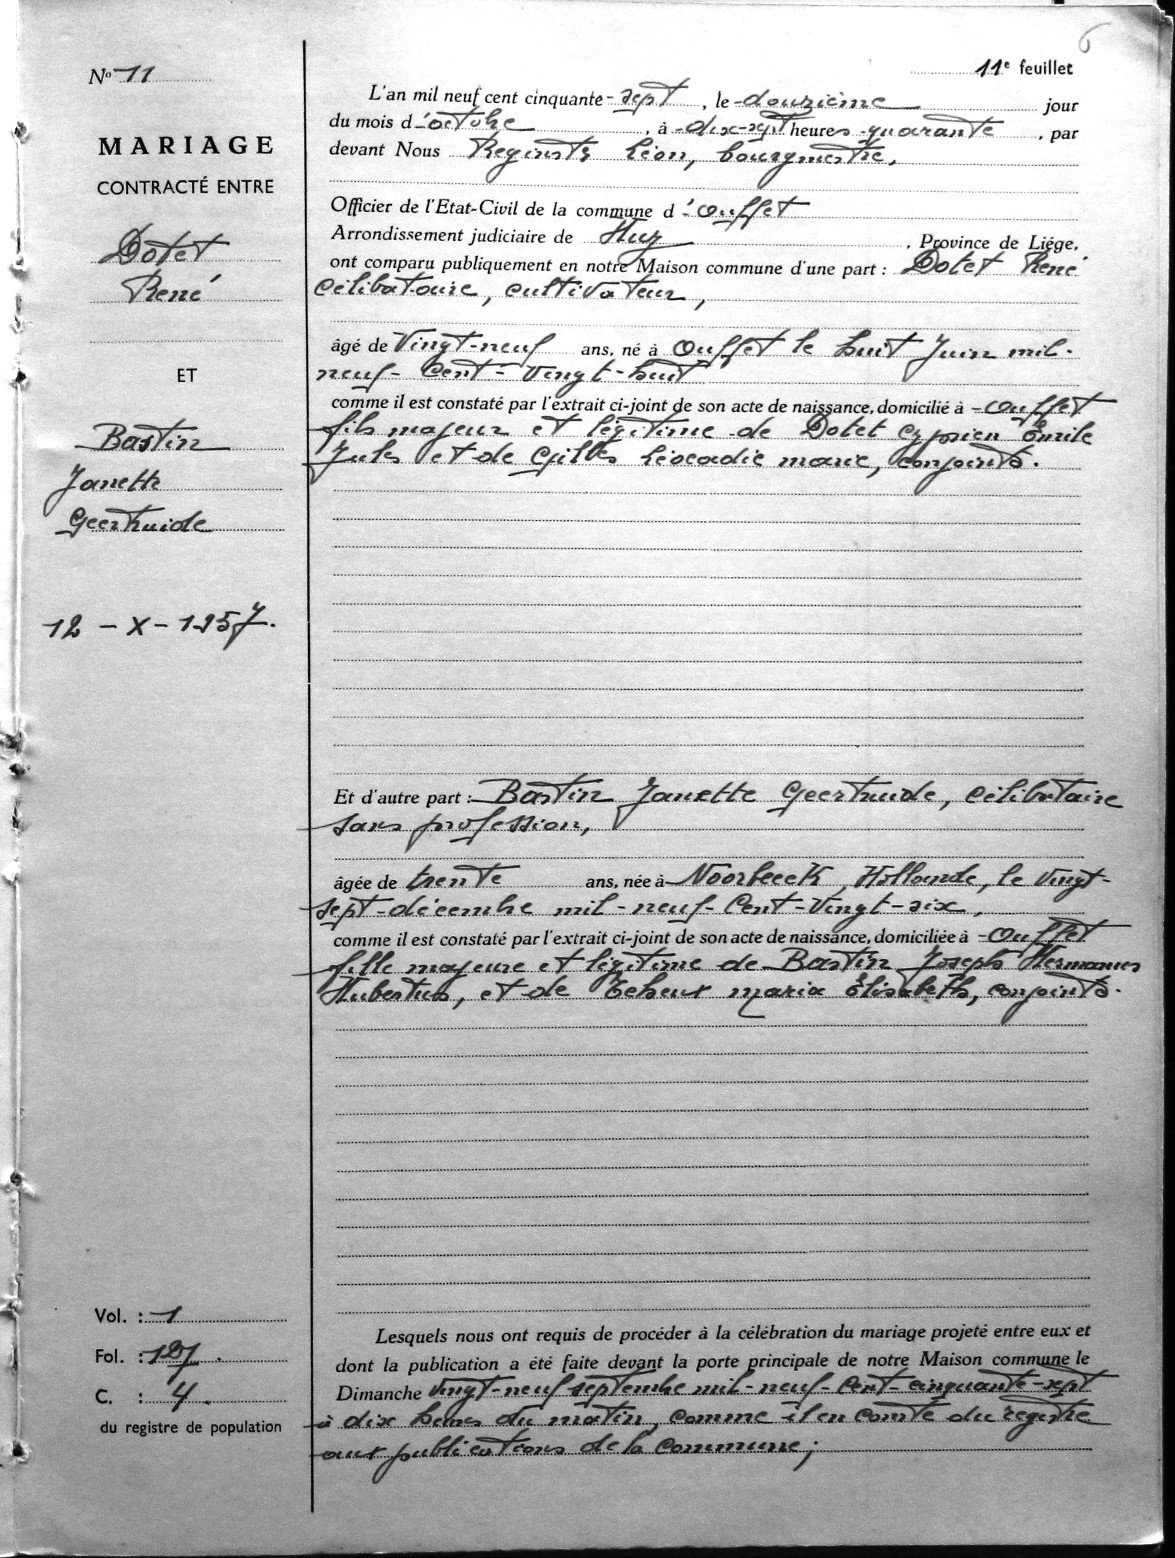 6
N° 11
11e feuillet
MARIAGE
CONTRACTÉ ENTRE
Dotet
René
ET
Bastin
Janette
Geertruide
12 - X - 1957.
L'an mil neuf cent cinquante-sept, le douzième jour
du mois d'octobre, à dix-sept heures quarante, par
devant Nous Reginster Léon, bourgmestre,
Officier de l'Etat-Civil de la commune d'Ouffet
Arrondissement judiciaire de Huy, Province de Liége,
ont comparu publiquement en notre Maison commune d'une part : Dotet René
célibataire, cultivateur,
âgé de Vingt-neuf ans, né à Ouffet le huit Juin mil-
neuf-Cent-Vingt-huit
comme il est constaté par l'extrait ci-joint de son acte de naissance, domicilié à Ouffet
fils majeur et légitime de Dotet Cyprien Émile
Jules et de Gilles Léocadie Marie, conjoints.
Et d'autre part : Bastin Janette Geertruide, célibataire
sans profession,
âgée de trente ans, née à Noorbeeck, Hollande, le vingt-
sept-décembre mil-neuf-Cent-Vingt-six,
comme il est constaté par l'extrait ci-joint de son acte de naissance, domiciliée à Ouffet
fille majeure et légitime de Bastin Joseph Hermanus
Hubertus, et de Teheux Maria Élisabeth, conjoints.
Lesquels nous ont requis de procéder à la célébration du mariage projeté entre eux et
dont la publication a été faite devant la porte principale de notre Maison commune le
Dimanche Vingt-neuf septembre mil-neuf-cent-cinquante-sept
à dix heures du matin, comme il en conste du registre
aux publications de la commune ;
Vol. : 1
Fol. : 127.
C. : 4.
du registre de population